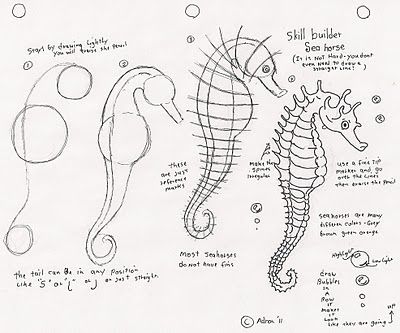 Skill builder
Sea horse
(It is not Hard-you dont
even Need to draw a
straight line!)
Start by drawing lightly
you will erase the pencil
1
2
3
4
these
are just
reference
marks
make the
spines
irregular
use a fine tip
marker and go
over the lines
then erase the pencil
seahorses are many
different colors - Grey
brown green orange
the tail can be in any position
Like "S" or "(" or J or just straight.
Most seahorses
do not have fins
Highlight
Low light
draw
Bubbles
in
A
Row
it
Makes
it
Look
like they are going
up
© Adron '11